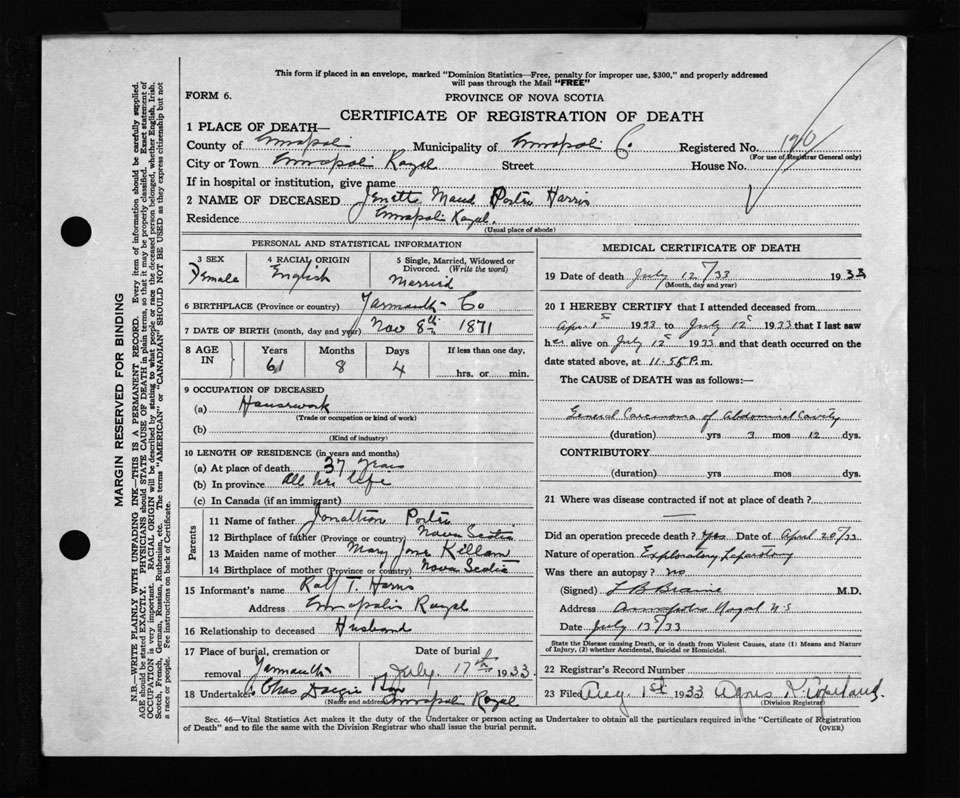 This form if placed in an envelope, marked "Dominion Statistics—Free, penalty for improper use, $300," and properly addressed
will pass through the Mail "FREE"
FORM 6.
PROVINCE OF NOVA SCOTIA
CERTIFICATE OF REGISTRATION OF DEATH
1 PLACE OF DEATH—
County of Annapolis Municipality of Annapolis Co Registered No. 190
(For use of Registrar General only)
City or Town Annapolis Royal Street House No.
If in hospital or institution, give name
2 NAME OF DECEASED Jenette Maud Porter Harris
Residence Annapolis Royal.
(Usual place of abode)
PERSONAL AND STATISTICAL INFORMATION
3 SEX Female
4 RACIAL ORIGIN English
5 Single, Married, Widowed or
Divorced. (Write the word)
Married
6 BIRTHPLACE (Province or country) Yarmouth Co
7 DATE OF BIRTH (month, day and year) Nov 8th 1871
8 AGE IN
Years Months Days If less than one day,
61 8 4 hrs. or min.
9 OCCUPATION OF DECEASED
(a) Housework
(Trade or occupation or kind of work)
(b)
(Kind of industry)
10 LENGTH OF RESIDENCE (in years and months)
(a) At place of death 37 years
(b) In province All her life
(c) In Canada (if an immigrant)
Parents
11 Name of father Jonathan Porter
12 Birthplace of father (Province or country) Nova Scotia
13 Maiden name of mother Mary Jane Killam
14 Birthplace of mother (Province or country) Nova Scotia
15 Informant's name Ralf T. Harris
Address Annapolis Royal
16 Relationship to deceased Husband
17 Place of burial, cremation or Date of burial
removal Yarmouth July 17th 1933
18 Undertaker Chas
(Name and address) Annapolis Royal
MEDICAL CERTIFICATE OF DEATH
19 Date of death July 12/33 1933
(Month, day and year)
20 I HEREBY CERTIFY that I attended deceased from
Apr 1st 1933 to July 12 1933 that I last saw
her alive on July 12 1933 and that death occurred on the
date stated above, at 11.58 P.m.
The CAUSE of DEATH was as follows:—
General Carcinoma of Abdominal Cavity
(duration) yrs 3 mos 12 dys.
CONTRIBUTORY
(duration) yrs mos dys.
21 Where was disease contracted if not at place of death?
Did an operation precede death? Yes Date of April 20/33
Nature of operation Exploratory Laparotomy
Was there an autopsy? no
(Signed) L B Braine M.D.
Address Annapolis Royal N S
Date July 13/33
State the Disease causing Death, or in death from Violent Causes, state (1) Means and Nature
of Injury, (2) whether Accidental, Suicidal or Homicidal.
22 Registrar's Record Number
23 Filed Aug 1st 1933 Agnes Copeland
(Division Registrar)
Sec. 46—Vital Statistics Act makes it the duty of the Undertaker or person acting as Undertaker to obtain all the particulars required in the "Certificate of Registration
of Death" and to file the same with the Division Registrar who shall issue the burial permit.
(OVER)
MARGIN RESERVED FOR BINDING
N.B.—WRITE PLAINLY WITH UNFADING INK—THIS IS A PERMANENT RECORD. Every item of information should be carefully supplied.
AGE should be stated EXACTLY. PHYSICIANS should STATE CAUSE OF DEATH in plain terms, so that it may be properly classified. Exact statement of
OCCUPATION is very important. RACIAL ORIGIN will be described by stating to what people or race the deceased person belonged, whether English, Irish,
Scotch, French, German, Russian, Ruthenian, etc. The terms "AMERICAN" or "CANADIAN" SHOULD NOT BE USED as they express citizenship but not
a race or people. See instructions on back of Certificate.